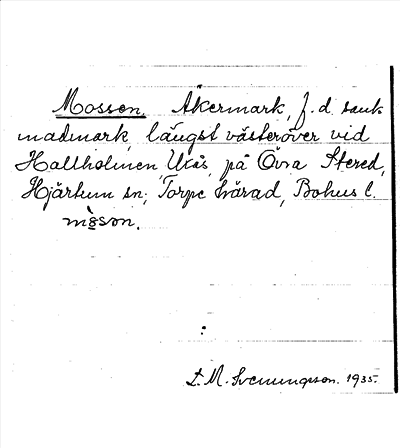 Mossen. Åkermark, f.d. sank
madmark, längst västeröver vid
Hallholmen, Ukås, på Övra Stered,
Hjärtum sn; Torpe härad, Bohus l.
mòsºn.
L. M. Svenungsson. 1935.